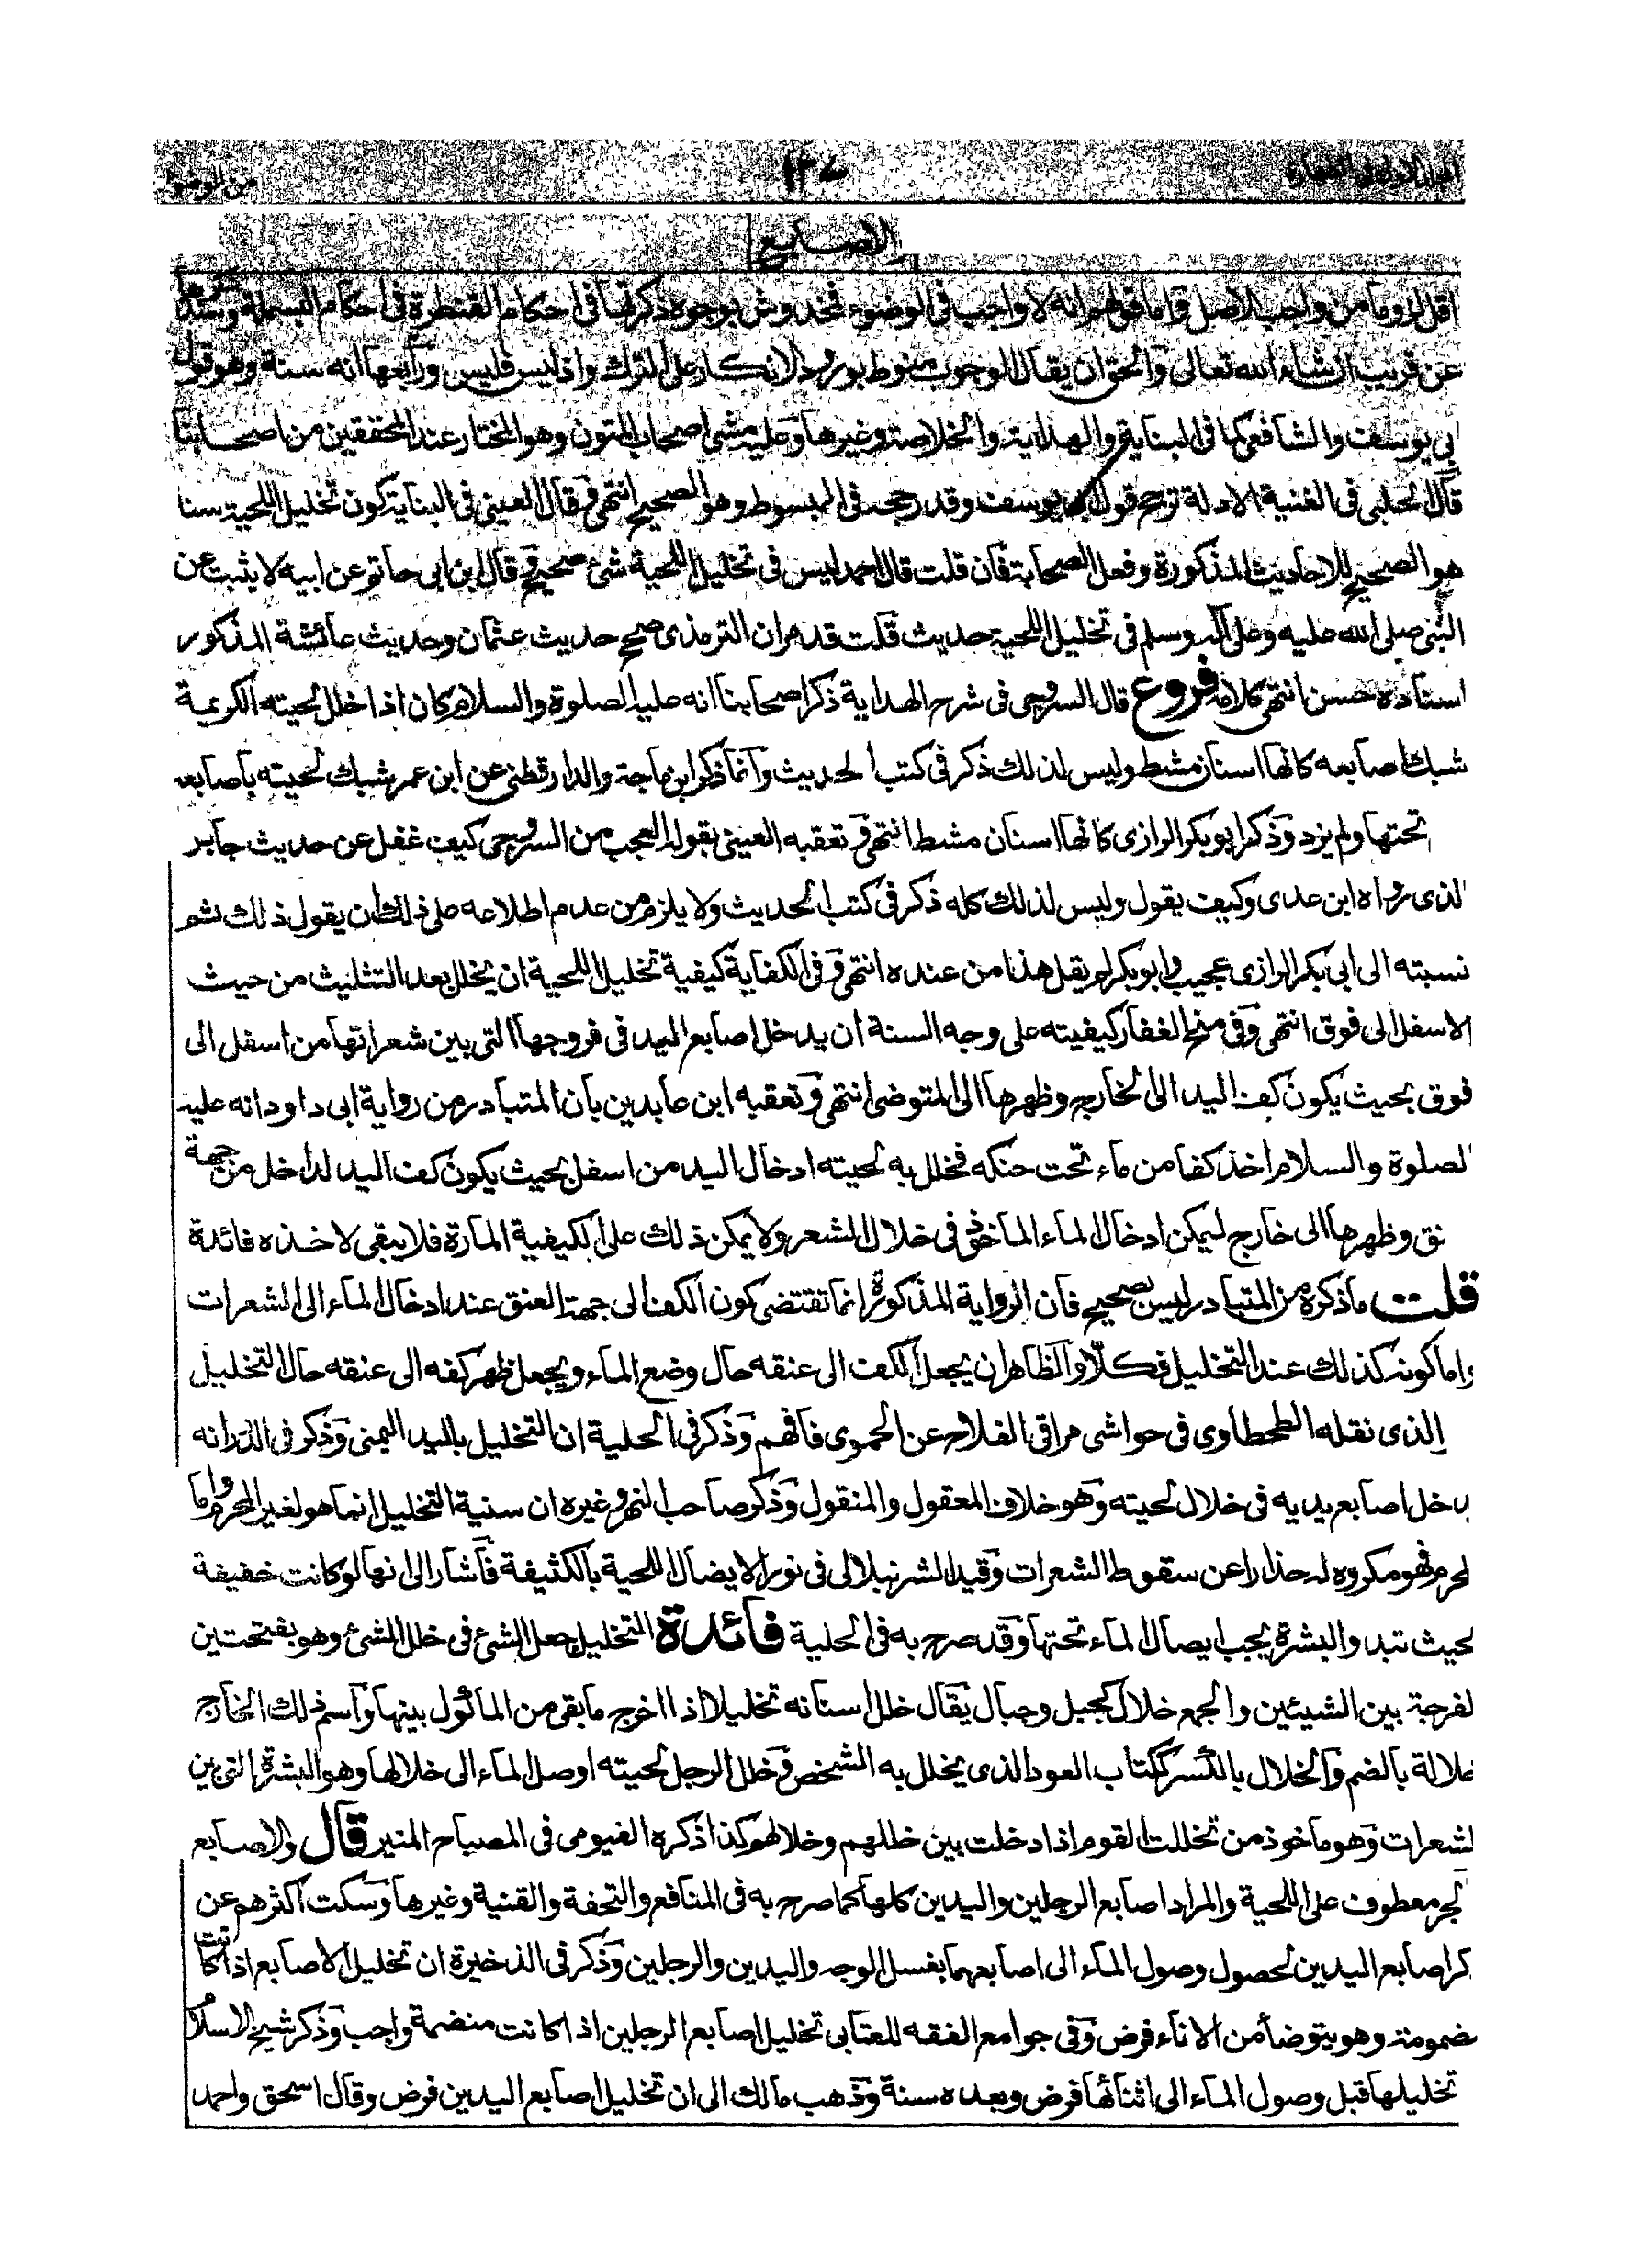 المجلد الاول فى الطهارة ١٣٤ من الوضوء
الاصابع
اقل لزوما من واجب الاصل واما قولهم انه لا واجب فى الوضوء فمخدوش بوجوه ذكرتها فى احكام القنطرة فى احكام البسملة وستذكرها
عن قريب ان شاء الله تعالى والحق ان يقال الوجوب منوط بورود الانكار على الترك واذ ليس فليس ورابعها انه سنة وهو قول
ابى يوسف والشافعى كما فى البناية والهداية والخلاصة وغيرها وعليه مشى اصحاب المتون وهو المختار عند المحققين من اصحابنا
قال الحلبى فى الغنية الادلة ترجح قول ابى يوسف وقد رجحه فى المبسوط وهو الصحيح انتهى وقال العينى فى البناية كون تخليل اللحية سنا
هو الصحيح للاحاديث المذكورة وفعل الصحابة فان قلت قال احمد ليس فى تخليل اللحية شئ صحيح وقال ابن ابى حاتم عن ابيه لا يثبت عن
النبى صلى الله عليه وعلى آله وسلم فى تخليل اللحية حديث قلت قد مر ان الترمذى صحح حديث عثمان وحديث عائشة المذكور
اسناده حسن انتهى كلامه فروع قال السروجى فى شرح الهداية ذكر اصحابنا انه عليه الصلوة والسلام كان اذا خلل لحيته الكريمة
شبك اصابعه كانها اسنان مشط وليس لذلك ذكر فى كتب الحديث وانما ذكر ابن ماجة والدارقطنى عن ابن عمر شبك لحيته باصابعه
تحتها ولم يزد وذكر ابو بكر الرازى كانها اسنان مشط انتهى وتعقبه العينى بقوله العجب من السروجى كيف غفل عن حديث جابر
الذى رواه ابن عدى وكيف يقول وليس لذلك كله ذكر فى كتب الحديث ولا يلزم من عدم اطلاعه على ذلك ان يقول ذلك ثم
نسبته الى ابى بكر الرازى عجيب وابو بكر لم يقل هذا من عنده انتهى وفى الكفاية كيفية تخليل اللحية ان يخلل بعد التثليث من حيث
الاسفل الى فوق انتهى وفى منح الغفار كيفيته على وجه السنة ان يدخل اصابع اليد فى فروجها التى بين شعراتها من اسفل الى
فوق بحيث يكون كف اليد الى الخارج وظهرها الى المتوضى انتهى وتعقبه ابن عابدين بان المتبادر من رواية ابى داود انه عليه
الصلوة والسلام اخذ كفا من ماء تحت حنكه فخلل به لحيته ادخال اليد من اسفل بحيث يكون كف اليد لداخل من جهة
نق وظهرها الى خارج ليمكن ادخال الماء الماخوذ فى خلال الشعر ولا يمكن ذلك على الكيفية المارة فلا يبقى لاخذه فائدة
قلت ما ذكره من المتبادر ليس بصحيح فان الرواية المذكورة انما تقتضى كون الكف الى جهة العنق عند ادخال الماء الى الشعرات
واما كونه كذلك عند التخليل فكلا والظاهر ان يجعل الكف الى عنقه حال وضع الماء ويجعل ظهر كفه الى عنقه حال التخليل
الذى نقله الطحطاوى فى حواشى مراقى الفلاح عن الحموى فافهم وذكر فى الحلية ان التخليل باليد اليمنى وذكر فى الدرر انه
يدخل اصابع يديه فى خلال لحيته وهو خلاف المعقول والمنقول وذكر صاحب النهر وغيره ان سنية التخليل انما هو لغير المحرم واما
لحرم فهو مكروه له حذارا عن سقوط الشعرات وقيد الشرنبلالى فى نور الايضاح اللحية بالكثيفة فاشار الى انها لو كانت خفيفة
لحيث تبدو البشرة يجب ايصال الماء تحتها وقد صرح به فى الحلية فائدة التخليل جعل الشئ فى خلل الشئ وهو بفتحتين
لفرجة بين الشيئين والجمع خلال كجبل وجبال يقال خلل اسنانه تخليلا اذا اخرج ما بقى من المأكول بينها واسم ذلك الخارج
خلالة بالضم والخلال بالكسر ككتاب العود الذى يخلل به الشخص وخلل الرجل لحيته اوصل الماء الى خلالها وهو البشرة التى بين
لشعرات وهو ماخوذ من تخللت القوم اذا دخلت بين خللهم وخلالهم كذا ذكره الفيومى فى المصباح المنير قال والاصابع
لجر معطوف على اللحية والمراد اصابع الرجلين واليدين كلها كما صرح به فى المنافع والتحفة والقنية وغيرها وسكت اكثرهم عن
كر اصابع اليدين لحصول وصول الماء الى اصابعهما بغسل الوجه واليدين والرجلين وذكر فى الذخيرة ان تخليل الاصابع اذا كانت
ضمومة وهو يتوضأ من الاناء فرض وفى جوامع الفقه للعتابى تخليل اصابع الرجلين اذا كانت منضمة واجب وذكر شيخ الاسلا
تخليلها قبل وصول الماء الى اثنائها فرض وبعده سنة وذهب مالك الى ان تخليل اصابع اليدين فرض وقال اسحق واحمد